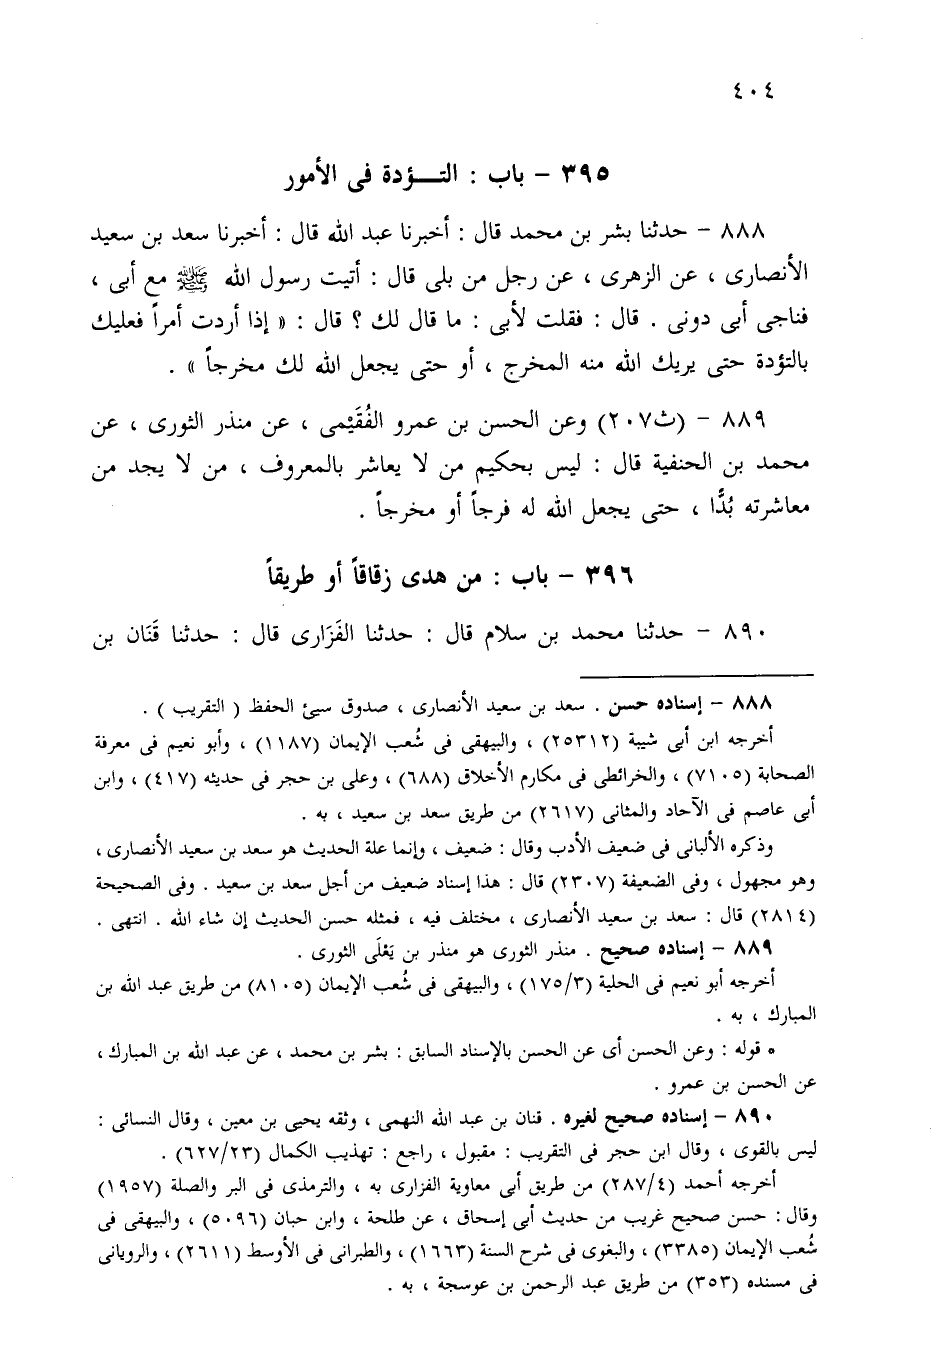 ٤٠٤
٣٩٥ – باب : التـــؤدة فى الأمور
٨٨٨ – حدثنا بشر بن محمد قال : أخبرنا عبد الله قال : أخبرنا سعد بن سعيد
الأنصارى ، عن الزهرى ، عن رجل من بلى قال : أتيت رسول الله ﷺ مع أبى ،
فناجى أبى دونى . قال : فقلت لأبى : ما قال لك ؟ قال : « إذا أردت أمراً فعليك
بالتؤدة حتى يريك الله منه المخرج ، أو حتى يجعل الله لك مخرجاً » .
٨٨٩ – (ث٢٠٧) وعن الحسن بن عمرو الفُقَيْمى ، عن منذر الثورى ، عن
محمد بن الحنفية قال : ليس بحكيم من لا يعاشر بالمعروف ، من لا يجد من
معاشرته بُدًّا ، حتى يجعل الله له فرجاً أو مخرجاً .
٣٩٦ – باب : من هدى زقاقاً أو طريقاً
٨٩٠ – حدثنا محمد بن سلام قال : حدثنا الفَزَارى قال : حدثنا قَنَان بن
٨٨٨ – إسناده حسن . سعد بن سعيد الأنصارى ، صدوق سيئ الحفظ ( التقريب ) .
أخرجه ابن أبى شيبة (٢٥٣١٢) ، والبيهقى فى شُعب الإيمان (١١٨٧) ، وأبو نعيم فى معرفة
الصحابة (٧١٠٥) ، والخرائطى فى مكارم الأخلاق (٦٨٨) ، وعلى بن حجر فى حديثه (٤١٧) ، وابن
أبى عاصم فى الآحاد والمثانى (٢٦١٧) من طريق سعد بن سعيد ، به .
وذكره الألبانى فى ضعيف الأدب وقال : ضعيف ، وإنما علة الحديث هو سعد بن سعيد الأنصارى ،
وهو مجهول ، وفى الضعيفة (٢٣٠٧) قال : هذا إسناد ضعيف من أجل سعد بن سعيد . وفى الصحيحة
(٢٨١٤) قال : سعد بن سعيد الأنصارى ، مختلف فيه ، فمثله حسن الحديث إن شاء الله . انتهى .
٨٨٩ – إسناده صحيح . منذر الثورى هو منذر بن يَعْلَى الثورى .
أخرجه أبو نعيم فى الحلية (١٧٥/٣) ، والبيهقى فى شُعب الإيمان (٨١٠٥) من طريق عبد الله بن
المبارك ، به .
• قوله : وعن الحسن أى عن الحسن بالإسناد السابق : بشر بن محمد ، عن عبد الله بن المبارك ،
عن الحسن بن عمرو .
٨٩٠ – إسناده صحيح لغيره . قنان بن عبد الله النهمى ، وثقه يحيى بن معين ، وقال النسائى :
ليس بالقوى ، وقال ابن حجر فى التقريب : مقبول ، راجع : تهذيب الكمال (٦٢٧/٢٣) .
أخرجه أحمد (٢٨٧/٤) من طريق أبى معاوية الفزارى به ، والترمذى فى البر والصلة (١٩٥٧)
وقال : حسن صحيح غريب من حديث أبى إسحاق ، عن طلحة ، وابن حبان (٥٠٩٦) ، والبيهقى فى
شُعب الإيمان (٣٣٨٥) ، والبغوى فى شرح السنة (١٦٦٣) ، والطبرانى فى الأوسط (٢٦١١) ، والرويانى
فى مسنده (٣٥٣) من طريق عبد الرحمن بن عوسجة ، به .